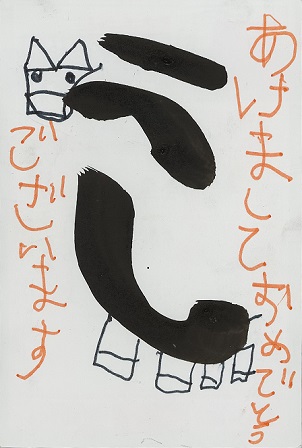 あけましておめでとう
うし
ございます